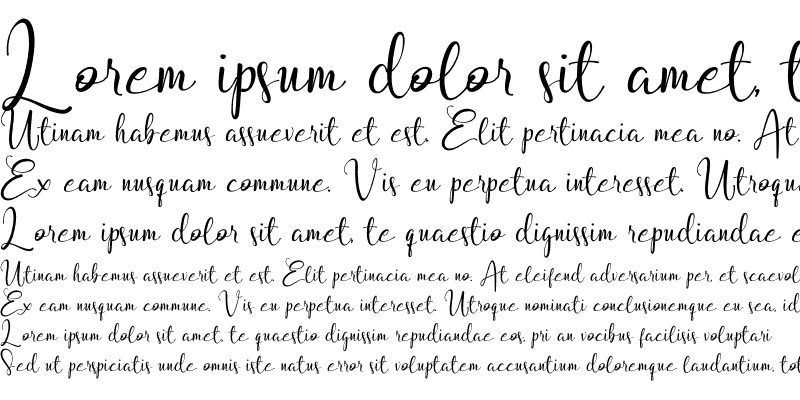 Lorem ipsum dolor sit amet, t
Utinam habemus assueverit et est. Elit pertinacia mea no. At
Ex eam nusquam commune. Vis eu perpetua interesset. Utroqu
Lorem ipsum dolor sit amet, te quaestio dignissim repudiandae e
Utinam habemus assueverit et est. Elit pertinacia mea no. At eleifend adversarium per, et scaevol
Ex eam nusquam commune. Vis eu perpetua interesset. Utroque nominati conclusionemque eu sea, id
Lorem ipsum dolor sit amet, te quaestio dignissim repudiandae eos, pri an vocibus facilisis voluptari
Sed ut perspiciatis unde omnis iste natus error sit voluptatem accusantium doloremque laudantium, tot